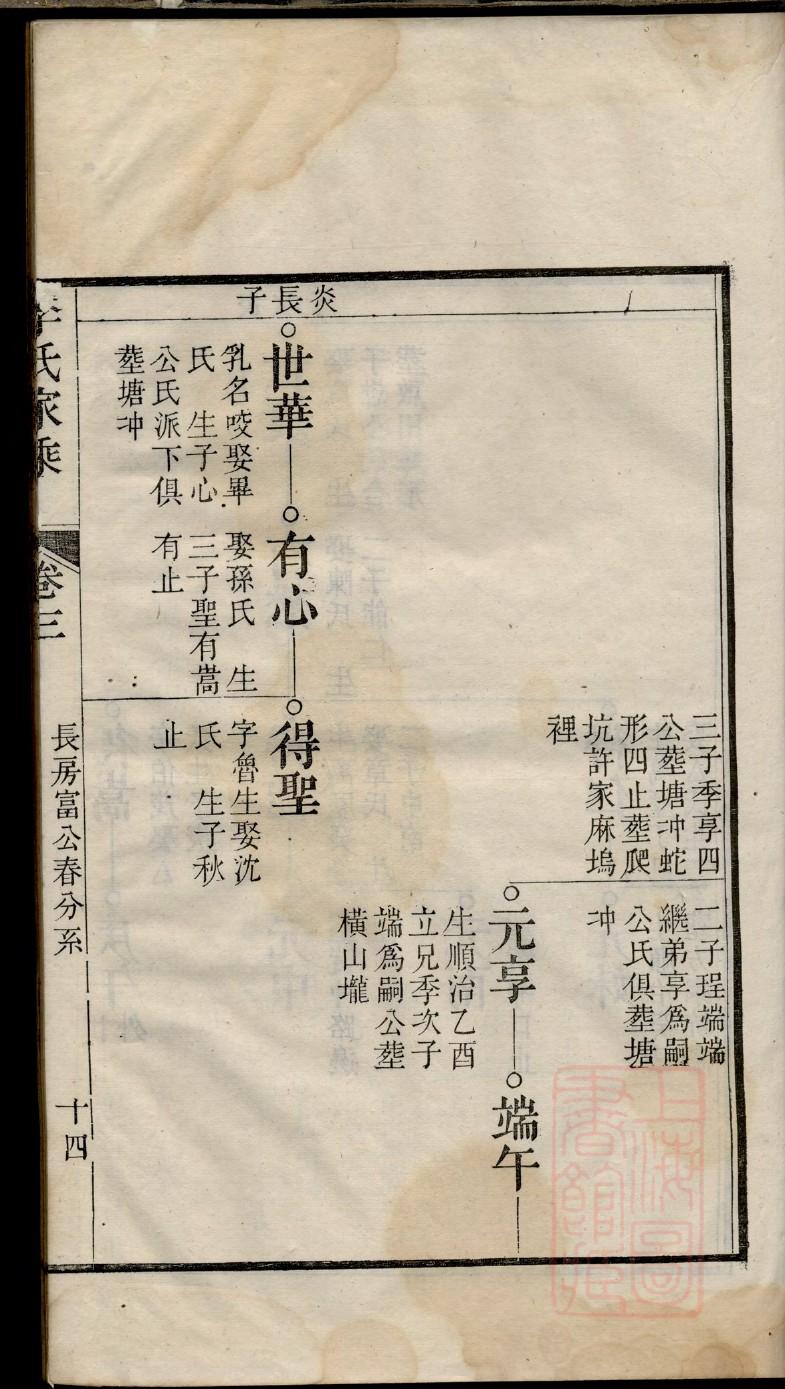 三子季享四
公塟塘冲蛇
形四止塟爬
坑許家麻塢
裡
二子珵端端
繼弟享爲嗣
公氏俱塟塘
冲
元享
生順治乙酉
立兄季次子
端爲嗣公塟
横山壠
端午
炎長子
世華
乳名咬娶畢
氏 生子心
公氏派下俱
塟塘冲
有心
娶孫氏 生
三子聖有嵩
有止
得聖
字魯生娶沈
氏 生子秋
止
李氏家乘
卷三
長房富公春分系
十四
上海圖書館藏